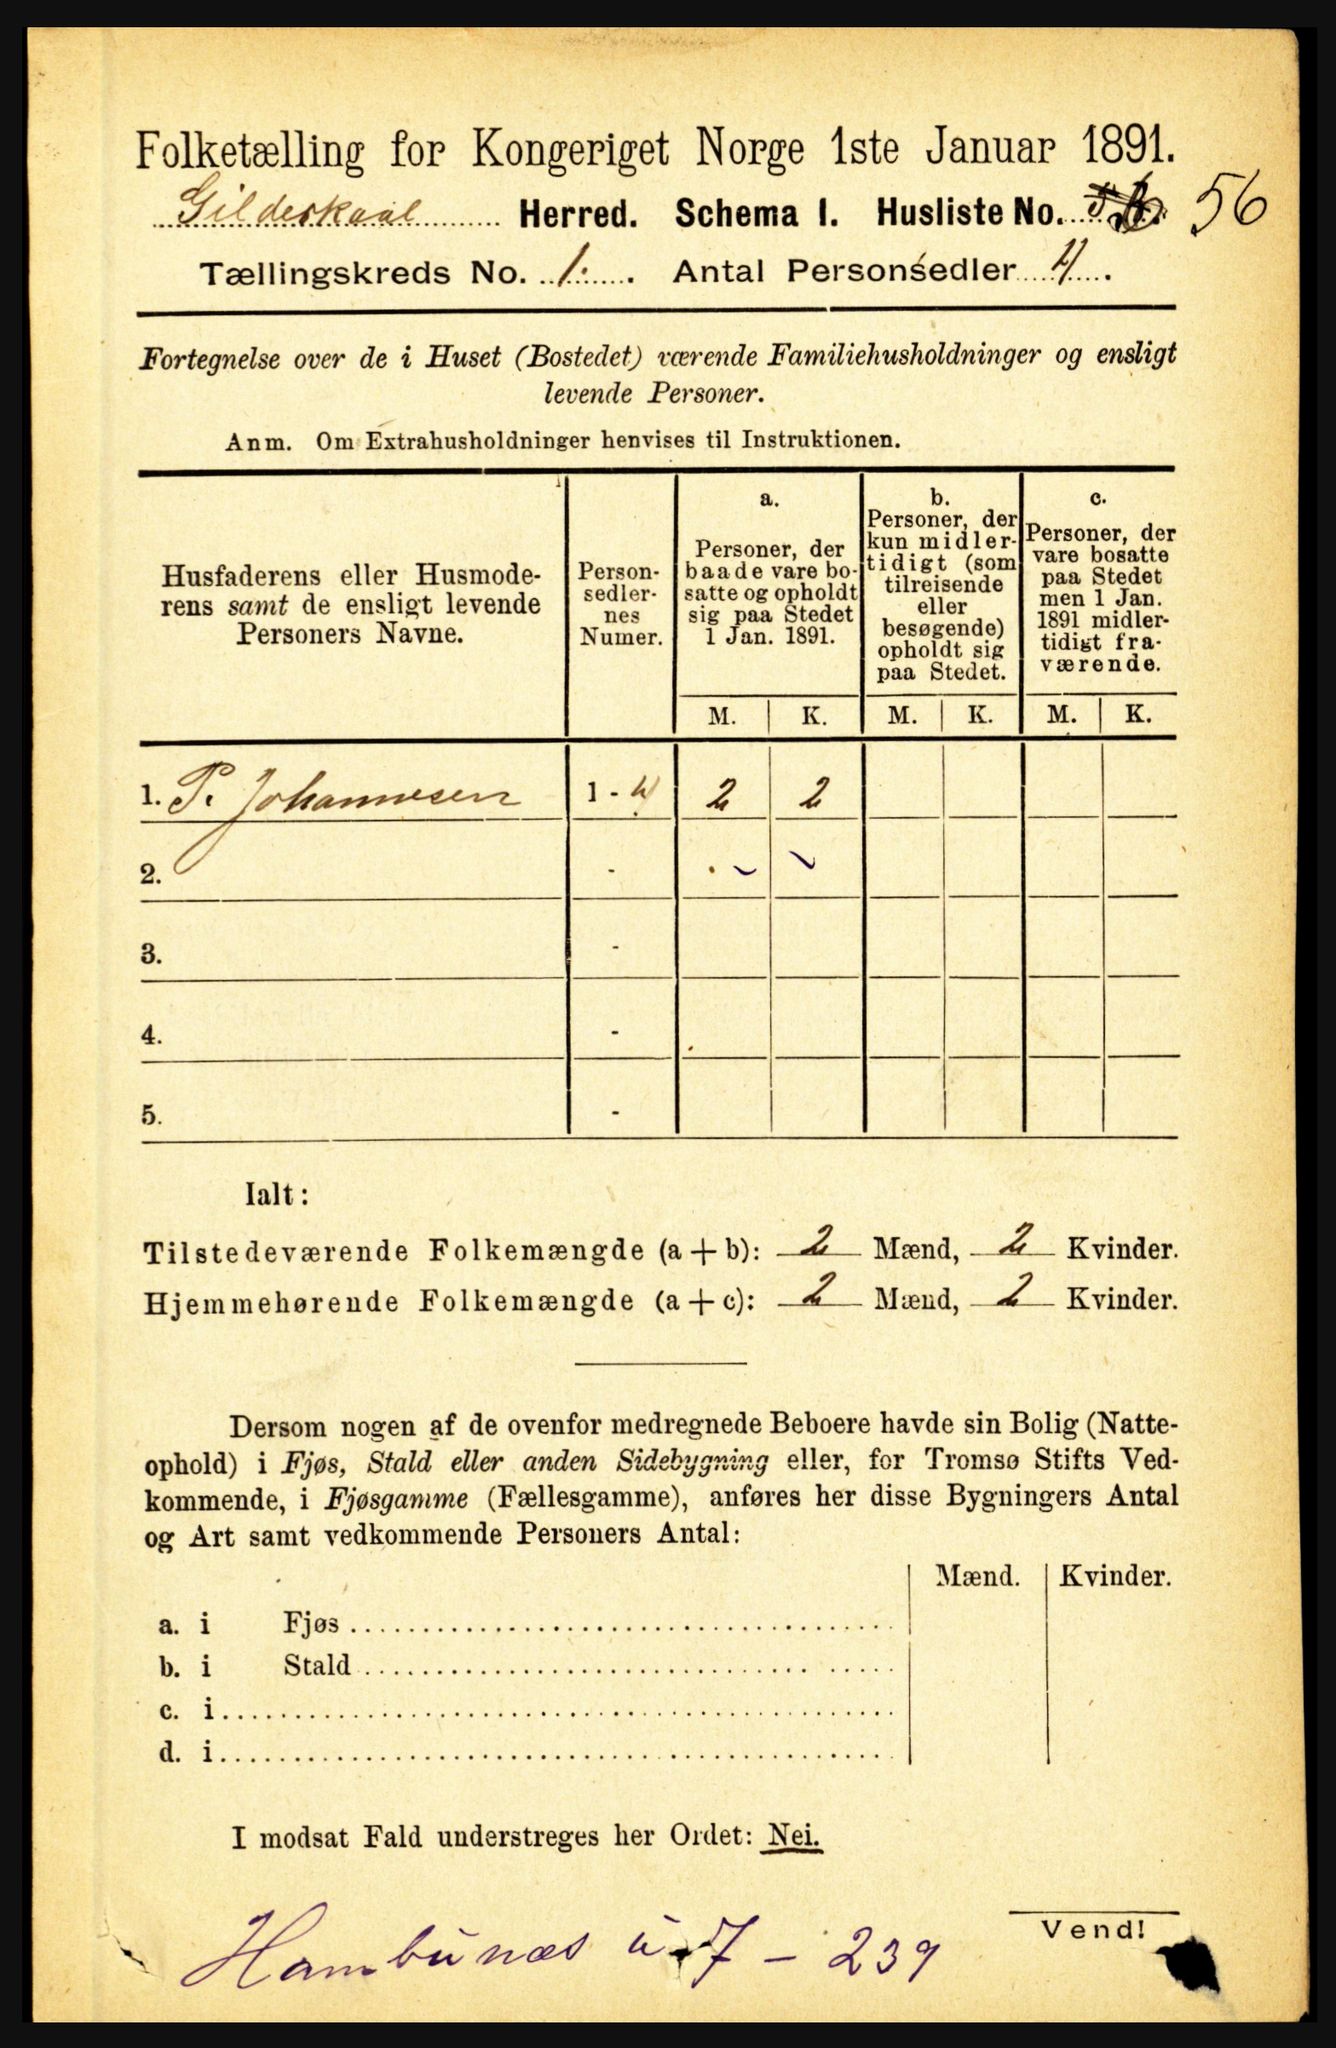 Folketælling for Kongeriget Norge 1ste Januar 1891.
Gildeskaal Herred. Schema I. Husliste No. 56
Tællingskreds No. 1. Antal Personsedler 4.
Fortegnelse over de i Huset (Bostedet) værende Familiehusholdninger og ensligt
levende Personer.
Anm. Om Extrahusholdninger henvises til Instruktionen.
Husfaderens eller Husmode-
rens samt de ensligt levende
Personers Navne.
Person-
sedler-
nes
Numer.
a.
Personer, der
baade vare bo-
satte og opholdt
sig paa Stedet
1 Jan. 1891.
b.
Personer, der
kun midler-
tidigt (som
tilreisende
eller
besøgende)
opholdt sig
paa Stedet.
c.
Personer, der
vare bosatte
paa Stedet
men 1 Jan.
1891 midler-
tidigt fra-
værende.
M. K. M. K. M. K.
1. P. Johannesen 1 - 4 2 2
2. -
3. -
4. -
5. -
Ialt:
Tilstedeværende Folkemængde (a + b): 2 Mænd, 2 Kvinder.
Hjemmehørende Folkemængde (a + c): 2 Mænd, 2 Kvinder.
Dersom nogen af de ovenfor medregnede Beboere havde sin Bolig (Natte-
ophold) i Fjøs, Stald eller anden Sidebygning eller, for Tromsø Stifts Ved-
kommende, i Fjøsgamme (Fællesgamme), anføres her disse Bygningers Antal
og Art samt vedkommende Personers Antal:
Mænd. Kvinder.
a. i Fjøs
b. i Stald
c. i
d. i
I modsat Fald understreges her Ordet: Nei.
Vend!
Hambunæs u 7 - 239